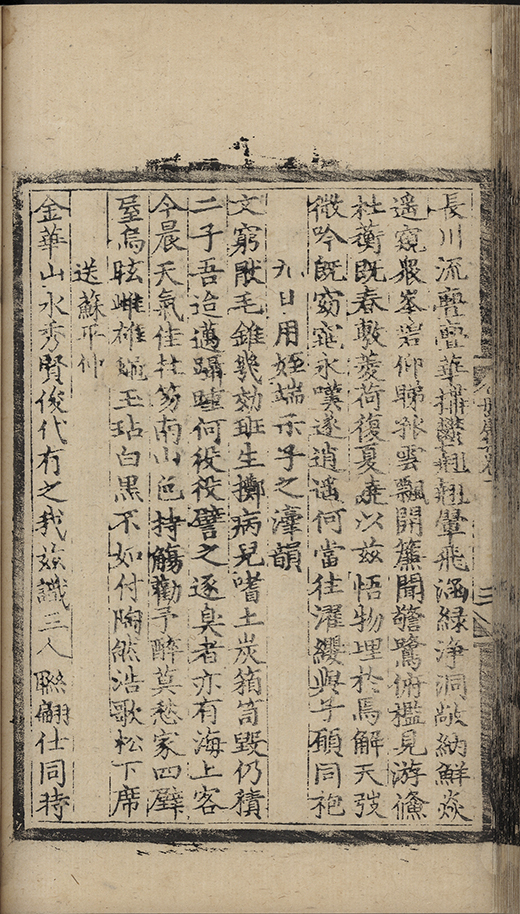 長川流亹亹華搆鬱翹翹暈飛涵緑淨洞敞納鮮焱
遥窺衆峯岩仰睇孤雲飄開簾聞警鷺俯檻見游鯈
杜蘅既春敷菱荷復夏嬈以茲悟物理於焉解天弢
微吟既窈窕永嘆遂逍遥何當往濯纓與子願同袍
九日用姪端示子之澐韻
文窮獸毛錐幾効班生擲病兒嗜土炭箱笥毀仍積
二子吾迨邁躡踵何役役譬之逐臭者亦有海上客
今晨天氣佳拄笏南山色持觴勸予醉莫愁家四壁
屋烏眩雌雄玉玷白黑不如付陶然浩歌松下席
送蘇平仲
金華山水秀賢俊代有之我茲識三人聯翩仕同時